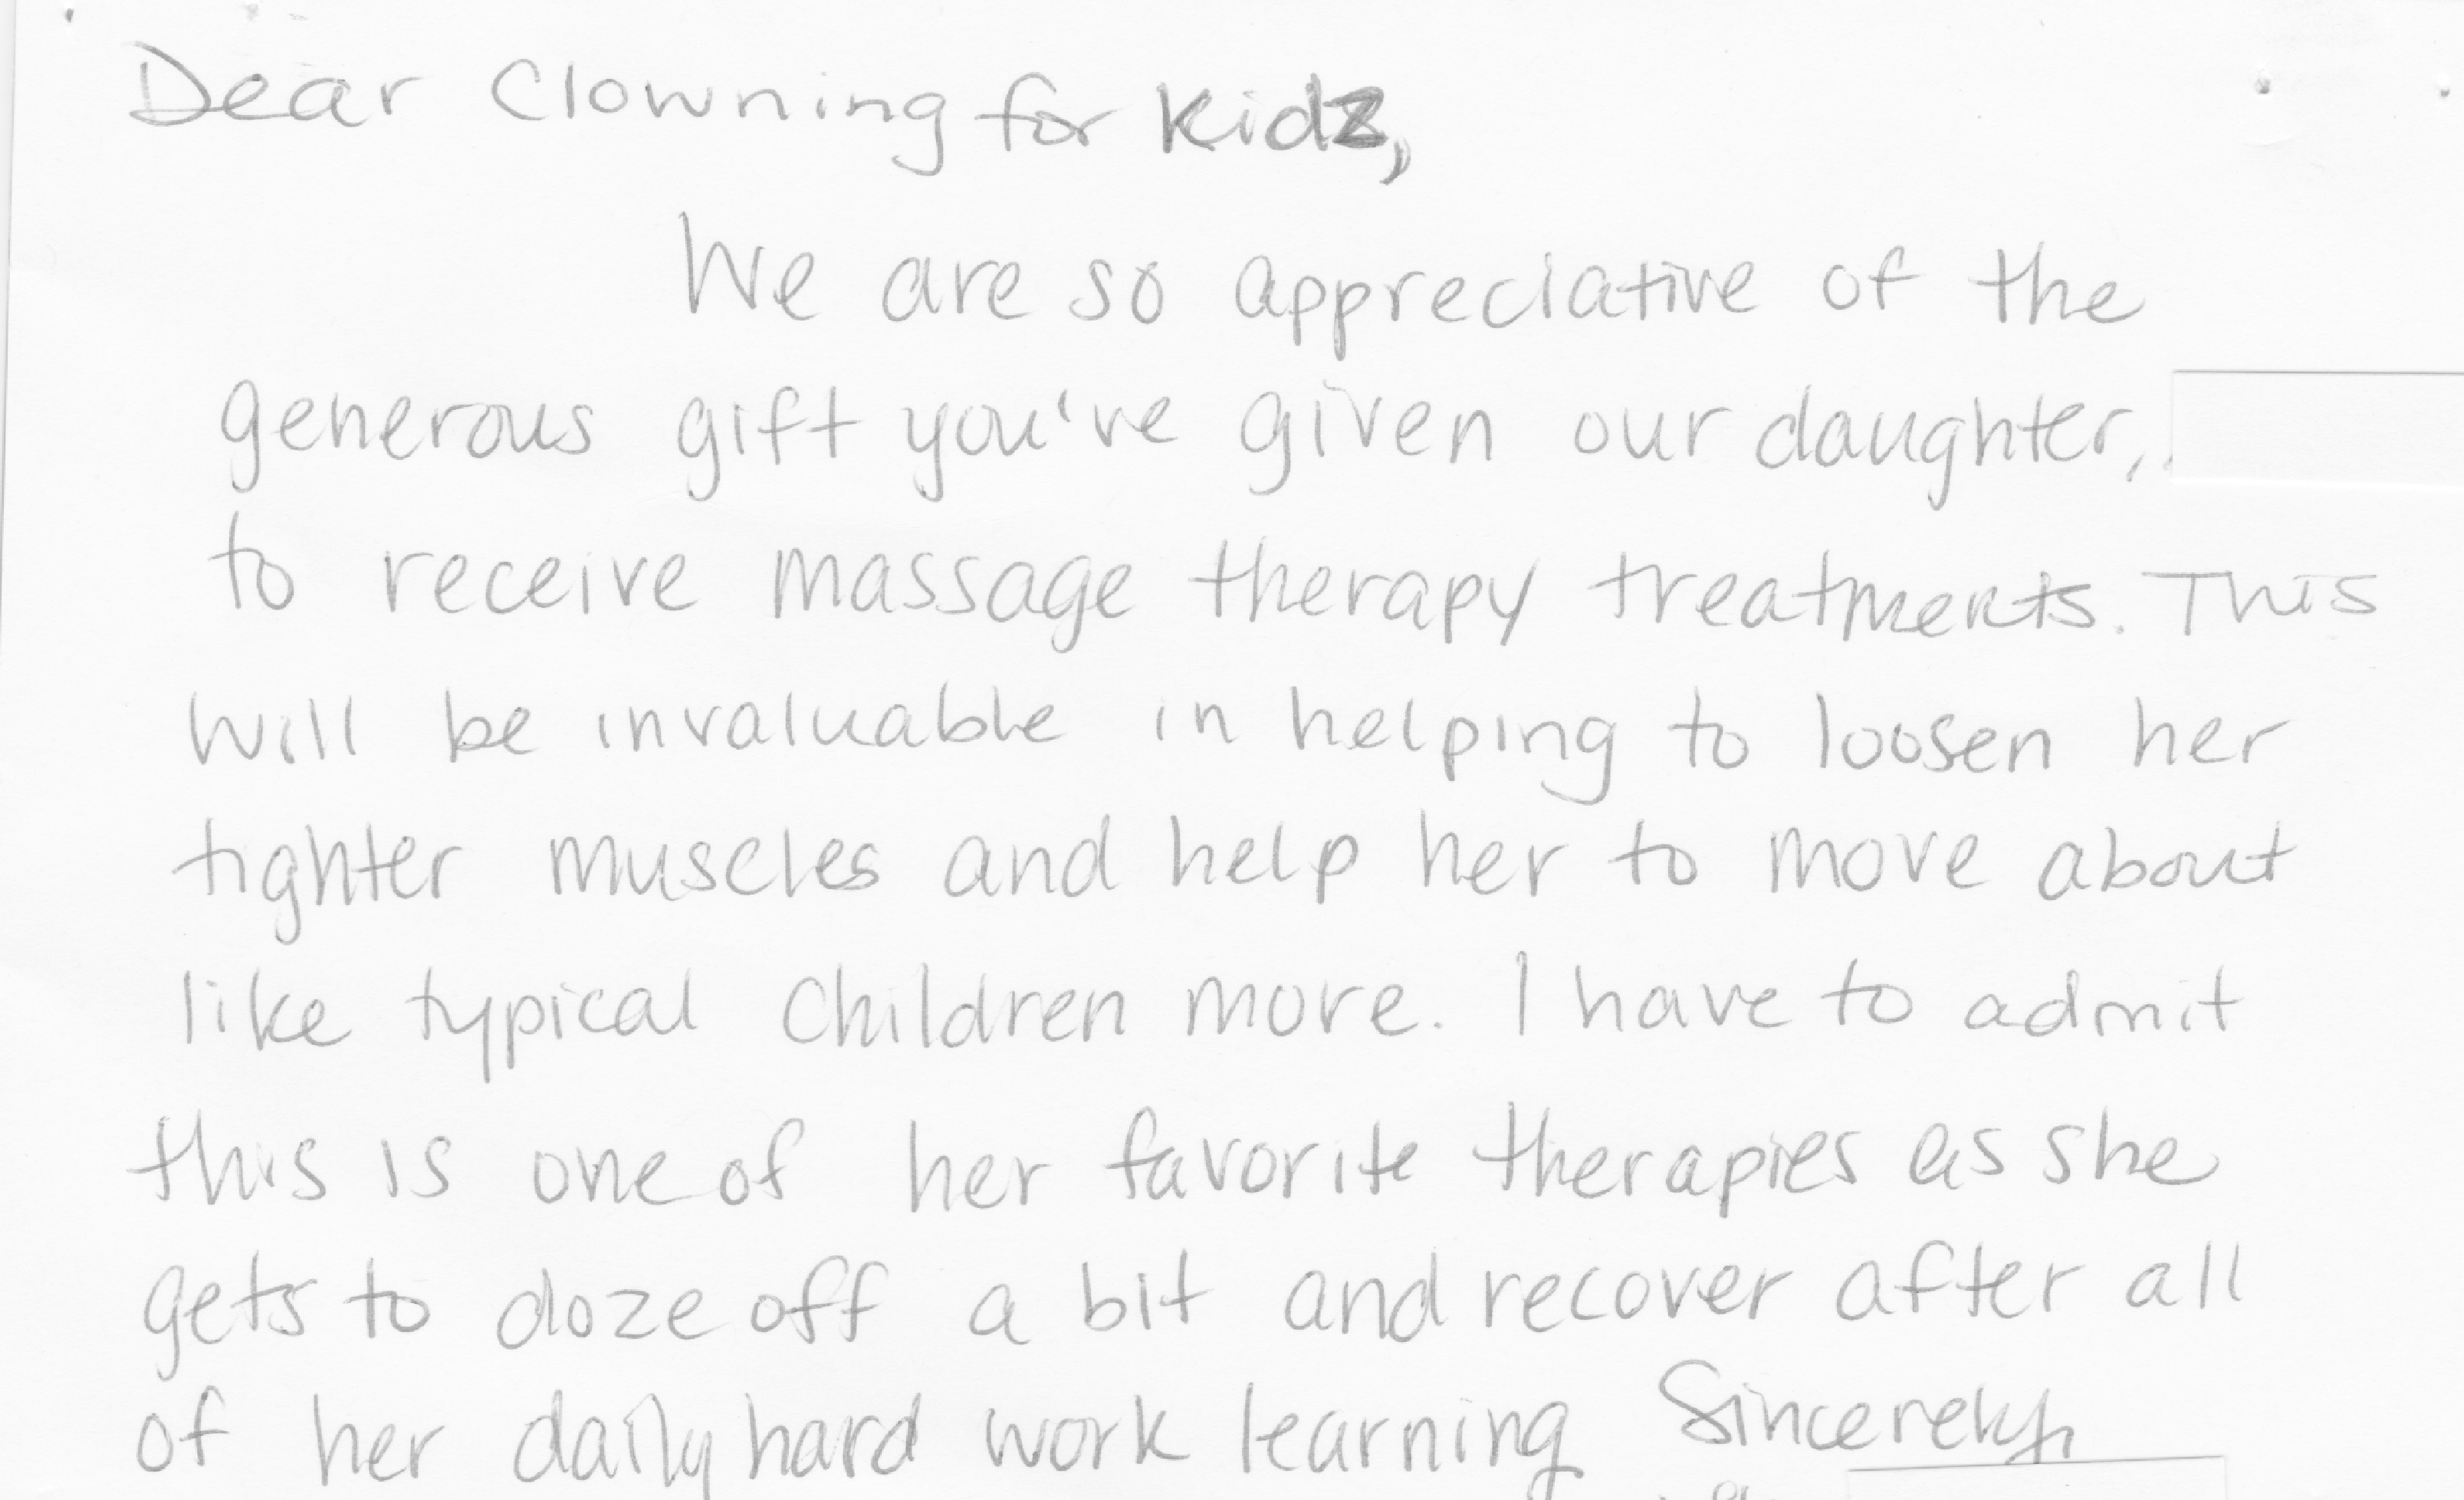 Dear Clowning for Kidz,
We are so appreciative of the
generous gift you've given our daughter,
to receive massage therapy treatments. This
will be invaluable in helping to loosen her
tighter muscles and help her to move about
like typical children more. I have to admit
this is one of her favorite therapies as she
gets to doze off a bit and recover after all
of her daily hard work learning Sincerely,